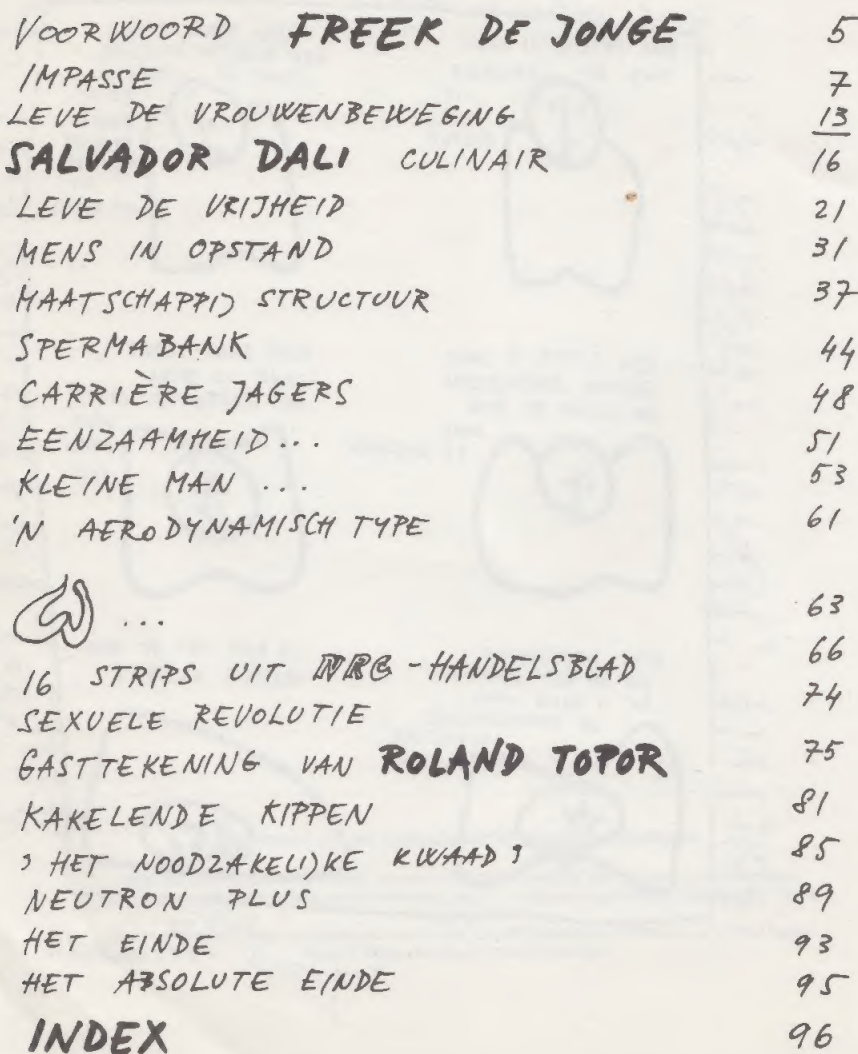 VOORWOORD FREEK DE JONGE 5
IMPASSE 7
LEVE DE VROUWENBEWEGING 13
SALVADOR DALI CULINAIR 16
LEVE DE VRIJHEID 21
MENS IN OPSTAND 31
MAATSCHAPPIJ STRUCTUUR 37
SPERMABANK 44
CARRIÈRE JAGERS 48
EENZAAMHEID... 51
KLEINE MAN ... 53
'N AERODYNAMISCH TYPE 61
... 63
16 STRIPS UIT NRC-HANDELSBLAD 66
SEXUELE REVOLUTIE 74
GASTTEKENING VAN ROLAND TOPOR 75
KAKELENDE KIPPEN 81
, HET NOODZAKELIJKE KWAAD ' 85
NEUTRON PLUS 89
HET EINDE 93
HET ABSOLUTE EINDE 95
INDEX 96